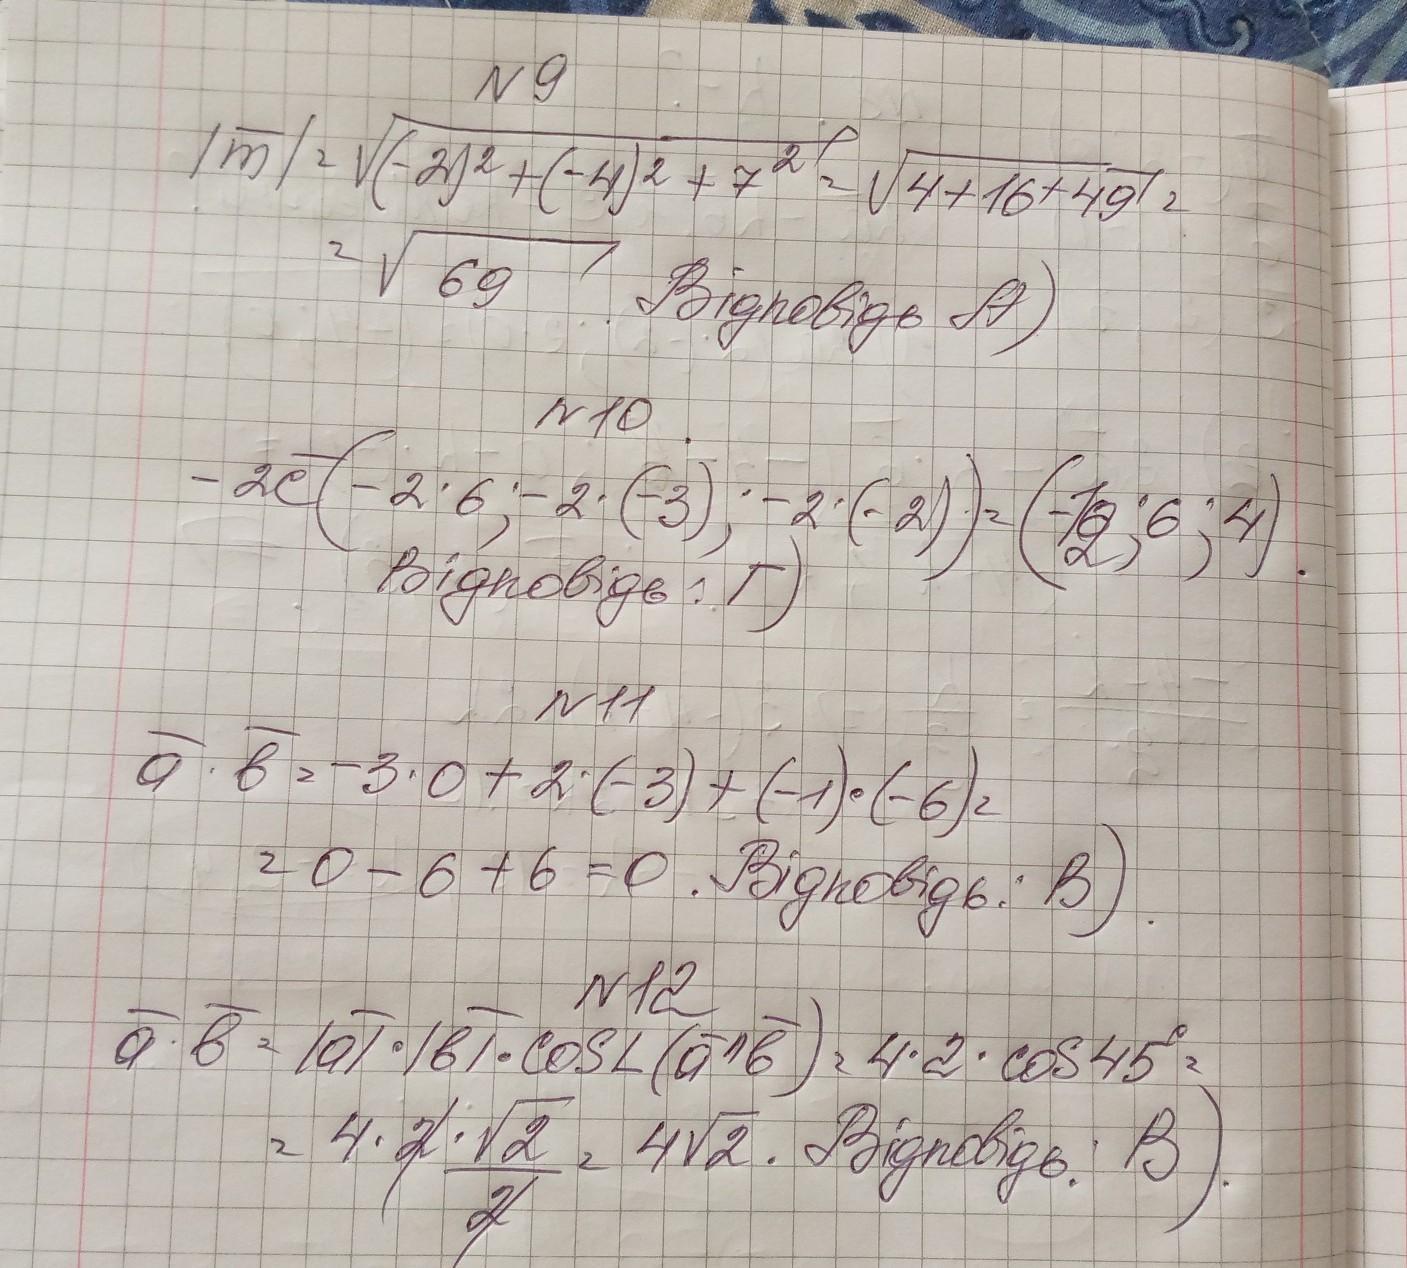 N9
|m̅| = √((-2)² + (-4)² + 7²) = √(4+16+49) =
= √69. Відповідь А)
N10
-2c̅(-2·6; -2·(-3); -2·(-2)) = (-12; 6; 4).
Відповідь: Г)
N11
a̅ · b̅ = -3·0 + 2·(-3) + (-1)·(-6) =
= 0 - 6 + 6 = 0. Відповідь: В).
N12
a̅ · b̅ = |a̅|·|b̅|·cos∠(a̅^b̅) = 4·2·cos45° =
= 4·2·√2/2 = 4√2. Відповідь: В).